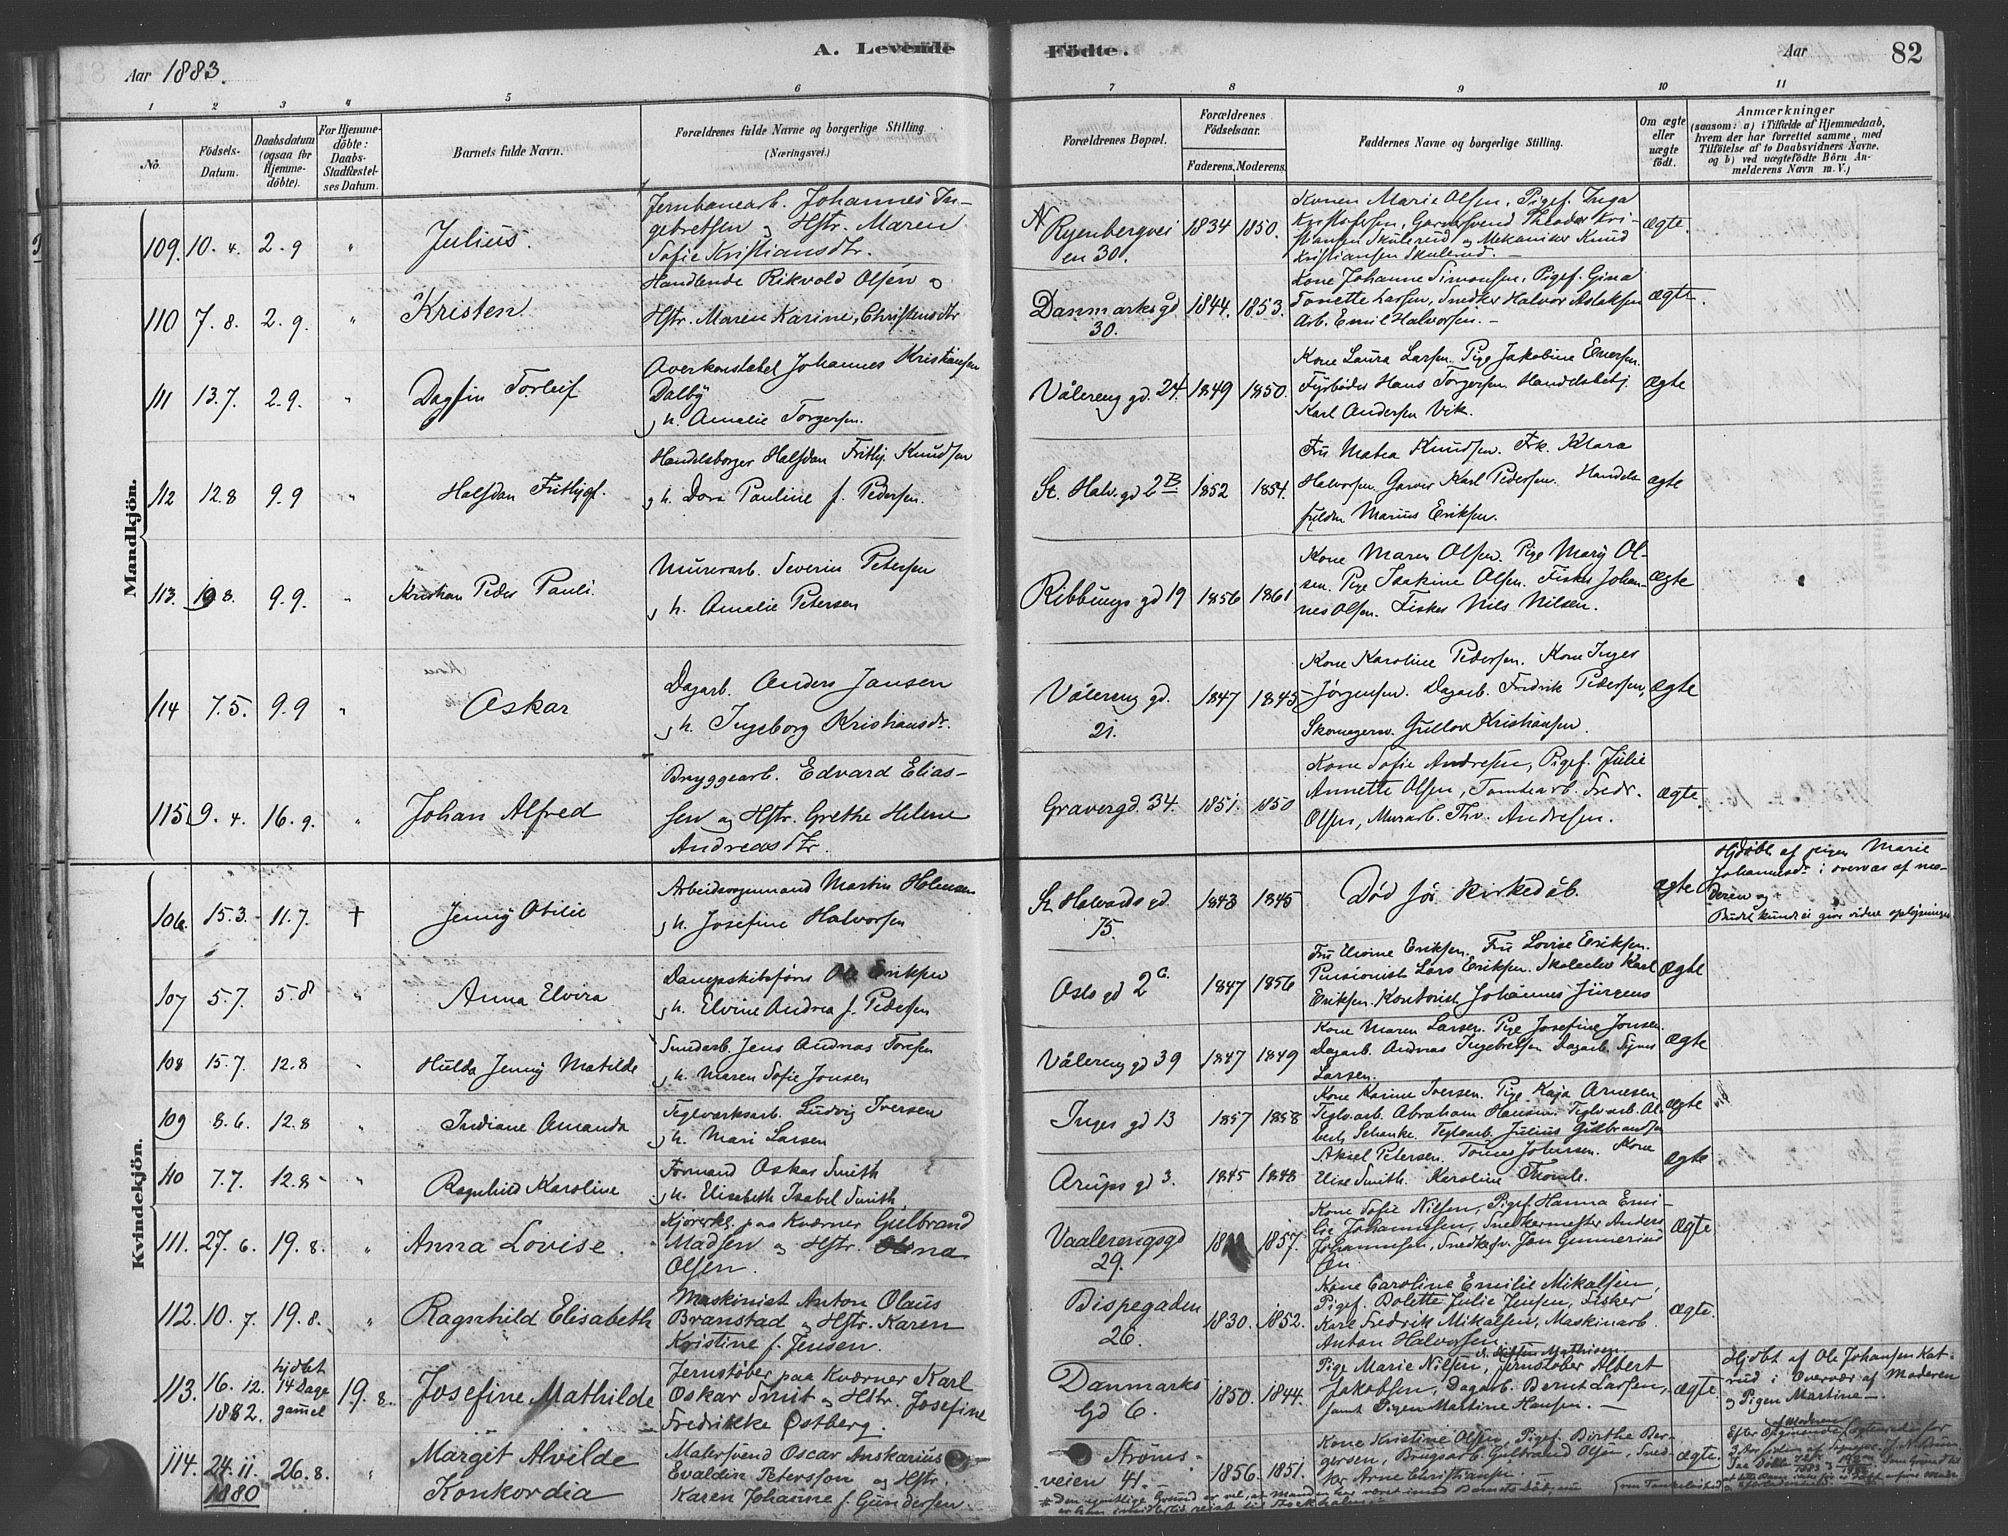 A. Levende Födte.
Aar 1883.
Aar
82
1 2 3 4 5 6 7 8 9 10 11
No.
Födsels-Datum.
Daabsdatum (ogsaa for Hjemme-döbte).
For Hjemme-döbte: Daabs-Stadfæstel-ses Datum.
Barnets fulde Navn.
Forældrenes fulde Navne og borgerlige Stilling (Næringsvei.)
Forældrenes Bopæl.
Forældrenes Födselsaar.
Faderens. Moderens.
Faddernes Navne og borgerlige Stilling.
Om ægte eller uægte födt.
Anmærkninger
(saasom: a) i Tilfælde af Hjemmedaab,
hvem der har forrettet samme, med
Tilföielse af to Daabsvidners Navne.
og b) ved uægtefödte Börn An-
melderens Navn m. V.)
Mandkjön.
109. 10. 4. 2. 9 " Julius.
Jernbanearb. Johannes In-
gebretsen og Hstr. Maren
Sofie Kristiansdtr.
Ryenbergvei
en 30.
1834 1850.
Konen Marie Olsen, Pigef. Inga
Kristofersen, Garversvend Theodor Kri-
stiansen Skulerud og Mekaniker Knud
Kristiansen Skulerud. —
ægte.
110 7. 8. 2. 9. " Kristen
Handlende Rikvold Olsen og
Hstr. Maren Karine, Christensdtr
Danmarksgd
30.
1844. 1853.
Kone Johanne Simonsen, Pigef. Gina
Tonette Larsen, Snedker Halvor Aslaksen
Arb. Emil Halvorsen. —
ægte.
111 13. 7. 2. 9. " Dagfin Torleif
Overkonstabel Johannes Kristiansen
Dalby
og h. Amalie Torgersen.
Vålereng gd. 24. 1849 1850.
Kone Laura Larsen. Pige Jakobine Emersen.
Fyrböder Hans Torgersen Handelsbetj.
Karl Andersen Vik.
ægte
112 12.8 9.9 " Halfdan Fritjof.
Handelsborger Halfdan Fritj. Knudsen
og h. Dora Pauline f. Pedersen.
St. Halv. gd 2B 1852 1854.
Fru Matea Knudsen. Frk. Klara
Halvorsen. Garver Karl Pedersen. Handels
fuldm Marius Eriksen.
ægte
113. 19 8. 9.9. " Kristian Peder Pauli.
Murerarb. Severin Petersen
og h. Amalie Petersen
Ribbungs gd 19 1856 1861
Kone Maren Olsen. Pige Mary Ol-
sen. Pige Isakine Olsen. Fisker Johan-
nes Olsen. Fisker Nils Nilsen.
ægte
114 7.5. 9.9 " Oskar
Dagarb. Anders Jansen
og h. Ingeborg Kristiansdr.
Vålereng gd.
21.
1847 1845
Kone Karoline Pedersen. Kone Inger
Jörgensen. Dagarb. Fredrik Pedersen,
Skomagersv. Gullov Kristiansen.
ægte
115 9. 4. 16. 9. " Johan Alfred
Bryggearb. Edvard Elias-
sen og Hstr. Grethe Helene
Andreasdtr.
Gravergd. 34. 1851. 1850
Kone Sofie Andresen, Pigef. Julie
Annette Olsen, Tomtearb. Fredr.
Olsen, Murarb. Thv. Andresen.
ægte.
Kvindekjön.
106. 15.3. 11.7. † Jenny Otilie
Arbeidsformand Martin Holmsen
og h. Josefine Halvorsen
St Halvards gd.
75.
1843 1845
Död för kirkedåb.
ægte
Hjdöbt af pigen Marie
Johannesd. i overvær af mo-
deren og
Budet kunde ei give videre oplysninger
107 5.7. 5.8 " Anna Elvira
Dampskibsförer Ole Eriksen
og h. Elvine Andrea f. Pedersen
Oslo gd 2c. 1847 1856
Fru Elvine Eriksen. Fru Lovise Eriksen.
Pensionist Lars Eriksen. Skoleelev Karl
Eriksen. Kontorist Johannes Jürgens
ægte
108 15.7. 12.8 " Hulda Jenny Matilde
Smedarb. Jens Andreas Toresen
og h. Maren Sofie Jonsen
Vålereng gd 39 1847 1849
Kone Maren Larsen. Pige Josefine Jonsen.
Dagarb. Andreas Ingebretsen Dagarb.
Larsen.
ægte
109 8.6. 12.8 " Indiane Amanda
Teglverksarb. Ludvig Iversen
og h. Mari Larsen
Inges gd 13 1857 1858
Kone Karine Iversen. Pige Kaja Arnesen
Teglv.arb. Abraham Hansen Teglv.arb. Al-
bert Schanke. Teglv.arb. Julius Gulbrandsen
ægte
110 7.7. 12.8 " Ragnhild Karoline
Formand Oskar Smith
og h. Elisabeth Isabel Smith
Arups gd 3. 1845 1848
Aksel Petersen. Tomas Johnsen. Kone
Elise Smith. Karoline
ægte
111. 27. 6. 19. 8. " Anna Lovise.
Kjörerk. paa Kværner Gulbrand
Madsen og Hstr.
Olsen.
Vaalerengsgd
29.
1857.
Kone Sofie Nilsen, Pigef. Hanna Emi-
lie Johannesen, Snedkermester Anders
Johannesen, Snedkersv. Jan Gunnerius
ægte
112. 10. 7. 19. 8. " Ragnhild Elisabeth
Maskinist Anton Olaus
Branstad og Hstr. Karen
Kristine f. Jensen.
Bispegaden
26.
1830. 1852.
Kone Caroline Emilie Mikalsen,
Pigef. Bolette Julie Jensen, Fisker
Karl Fredrik Mikalsen, Maskinarb.
Anton Halvorsen.
ægte.
113. 16. 12. 1882. hjdöbt 14 Dage gammel 19. 8. Josefine Mathilde
Jernstöber paa Kværner Karl
Oskar Smit og Hstr. Josefine
Fredrikke Østberg.
Danmarks
Gd 6.
1850. 1844.
Pige Marie Nilsen, Jernstöber Albert
Jakobsen, Dagarb. Bernt Larsen,
samt Pigen Martine Hansen. —
ægte.
Hjdöbt af Ole Johansen Kat-
rud i Overvær af Moderen
og Pigen Martine —
114. 24. 11. 1880 26. 8. " Margit Alvilde
Konkordia
Malersvend Oscar Anskarius
Evaldin Petersson og Hstr.
Karen Johanne f. Gundersen.
Ströms-
veien 41.
1856. 1851.
Kone Kristine Olsen, Pigef. Birthe Ber-
gersen, Brugsarb. Gulbrand Olsen, Sned-
ker Arne Christiansen —
ægte.
Efter Opgivende